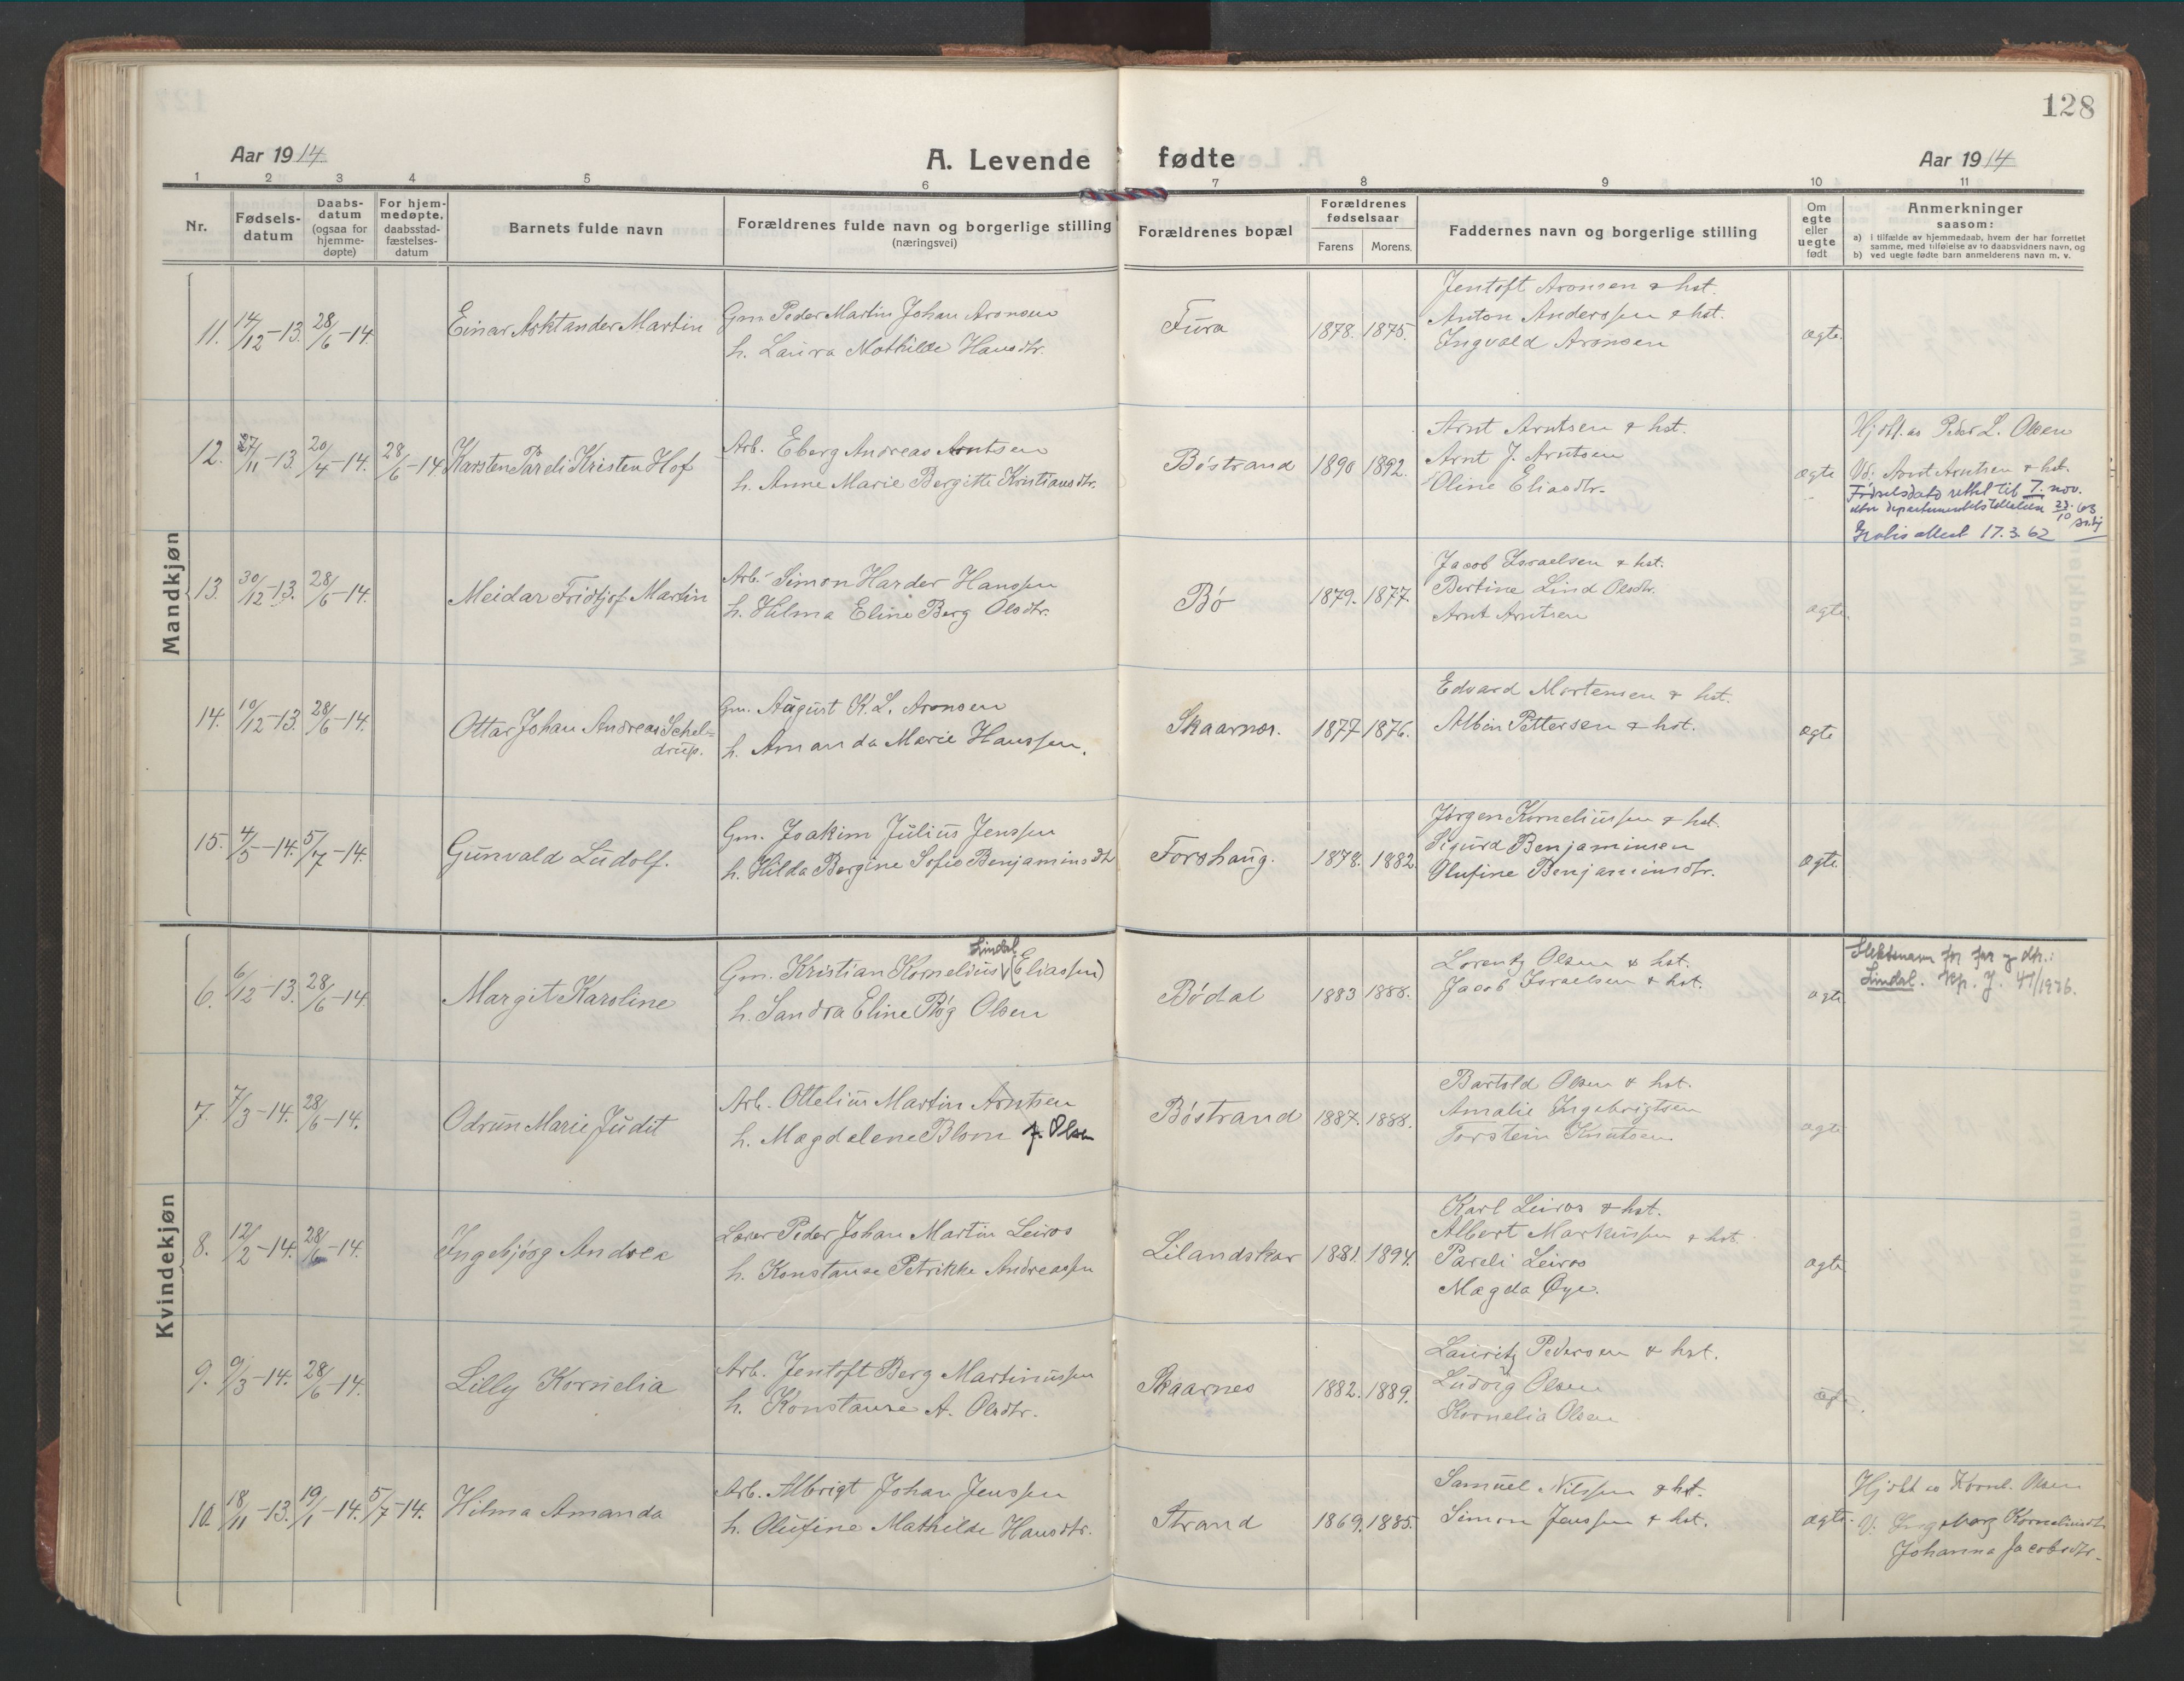 128
Aar 1914
A. Levende fødte
Aar 1914
1 2 3 4 5 6 7 8 9 10 11
Nr.
Fødsels-
datum
Daabs-
datum
(ogsaa for
hjemme-
døpte)
For hjem-
medøpte,
daabsstad-
fæstelses-
datum
Barnets fulde navn
Forældrenes fulde navn og borgerlige stilling
(næringsvei)
Forældrenes bopæl
Forældrenes
fødselsaar
Farens Morens.
Faddernes navn og borgerlige stilling
Om
egte
eller
uegte
født
Anmerkninger
saasom:
a) I tilfælde av hjemmedaab, hvem der har forrettet
samme, med tilføielse av to daabsvidners navn, og
b) ved uegte fødte barn anmelderens navn m. v.
Mandkjøn
11. 14/12-13. 28/6-14. Einar Asktander Martin
Gm. Peder Martin Johan Aronsen
h. Laura Mathilde Hansdtr.
Fura 1878. 1875.
Jentoft Aronsen & hst.
Anton Anderssen & hst.
Ingvald Aronsen
ægte.
12. 27/11-13. 20/4-14. 28/6-14. Karsten Pareli Kristen Hof
Arb. Eberg Andreas Arntsen
h. Anne Marie Bergitte Kristiansdtr.
Bøstrand 1890 1892.
Arnt Arntsen & hst.
Arnt J. Arntsen
Oline Eliasdtr.
ægte
Hjdbt. av Peder L. Olsen
Vd: Arnt Arntsen & hst.
Fødselsdato rettet til 7. nov.
etter departementets tillatelse 23/10 63
Gratis attest 17.3.62
13. 30/12-13. 28/6-14. Meidar Fridtjof Martin
Arb. Simon Harder Hanssen
h. Hilma Eline Berg Olsdtr.
Bø 1879. 1877.
Jacob Israelsen & hst.
Bertine Lind Olsdtr.
Arnt Arntsen
ægte
14. 10/12-13. 28/6-14. Ottar Johan Andreas Schel=
drup.
Gm. August K. L. Aronsen
h. Amanda Marie Hanssen.
Skaarnes. 1877 1876.
Edvard Mortensen & hst.
Albin Pettersen & hst.
ægte
15. 4/5-14. 5/7-14. Gunvald Ludolf.
Gm. Joakim Julius Jenssen
h. Hilda Bergine Sofie Benjaminsdtr
Forshaug. 1878. 1882.
Jørgen Korneliussen & hst.
Sigurd Benjaminsen
Olufine Benjaminsdtr.
ægte.
Kvindekjøn
6. 6/12-13. 28/6-14. Margit Karoline
Lindal
Gm. Kristian Kornelius (Eliassen)
h. Sandra Eline Bøg Olsen
Bødal 1883 1888.
Lorentz Olsen & hst.
Jacob Israelsen & hst.
ægte
Slektsnavn for far og dtr.:
Lindal. Kp. J. 41/1926.
7. 7/3-14. 28/6-14. Odrun Marie Judit
Arb. Ottelius Martin Arntsen
h. Magdalene Blom f. Olsen
Bøstrand 1887. 1888.
Bartold Olsen & hst.
Amalie Ingebrigtsen
Torstein Knutsen
ægte
8. 12/2-14. 28/6-14. Ingebjørg Andrea
Lærer Peder Johan Martin Leiros
h. Konstanse Petrikke Andreassen
Lilandskar 1881. 1894.
Karl Leiros & hst.
Albert Markussen & hst.
Pareli Leiros
Magda Øye.
ægte
9. 9/3-14. 28/6-14. Lilly Kornelia
Arb. Jentoft Berg Martinussen
h. Konstanse A. Olsdtr.
Skaarnes 1882. 1889.
Lauritz Pedersen & hst.
Ludvig Olsen
Kornelia Olsen
10. 18/11-13. 19/1-14. 5/7-14. Hilma Amanda
Arb. Albrigt Johan Jenssen
h. Olufine Mathilde Hansdtr.
Strand 1869. 1885.
Samuel Nilssen & hst.
Simon Jenssen & hst.
ægte.
Hjdbt av Kornl. Olsen
V. Ingeborg Korneliusdtr
Johanna Jacobsdtr.